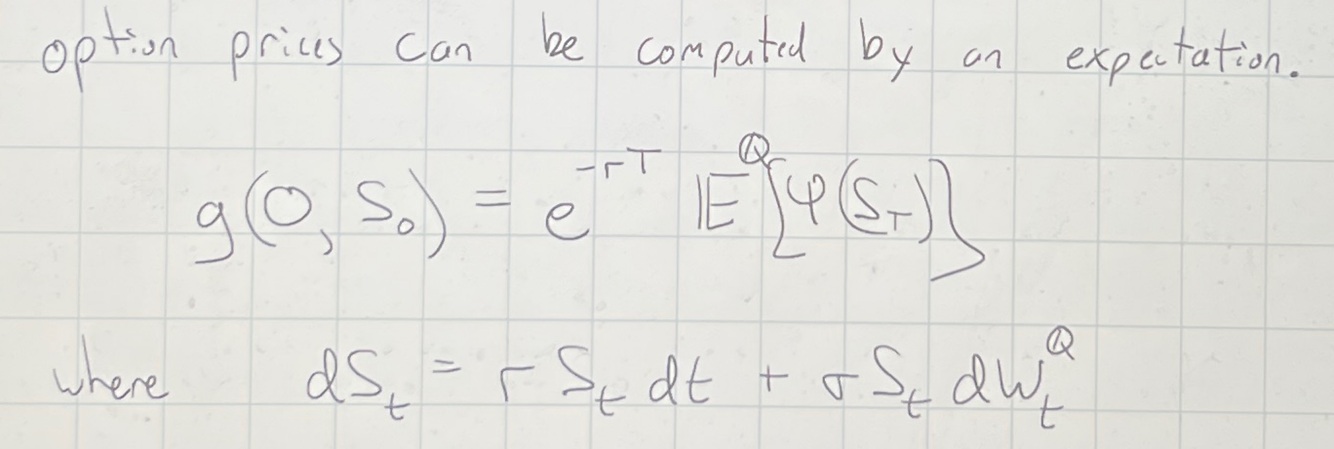 option prices can be computed by an expectation.
g(0, S₀) = e^{-rT} 𝔼^Q[φ(S_T)]
where dS_t = r S_t dt + σ S_t dW_t^Q